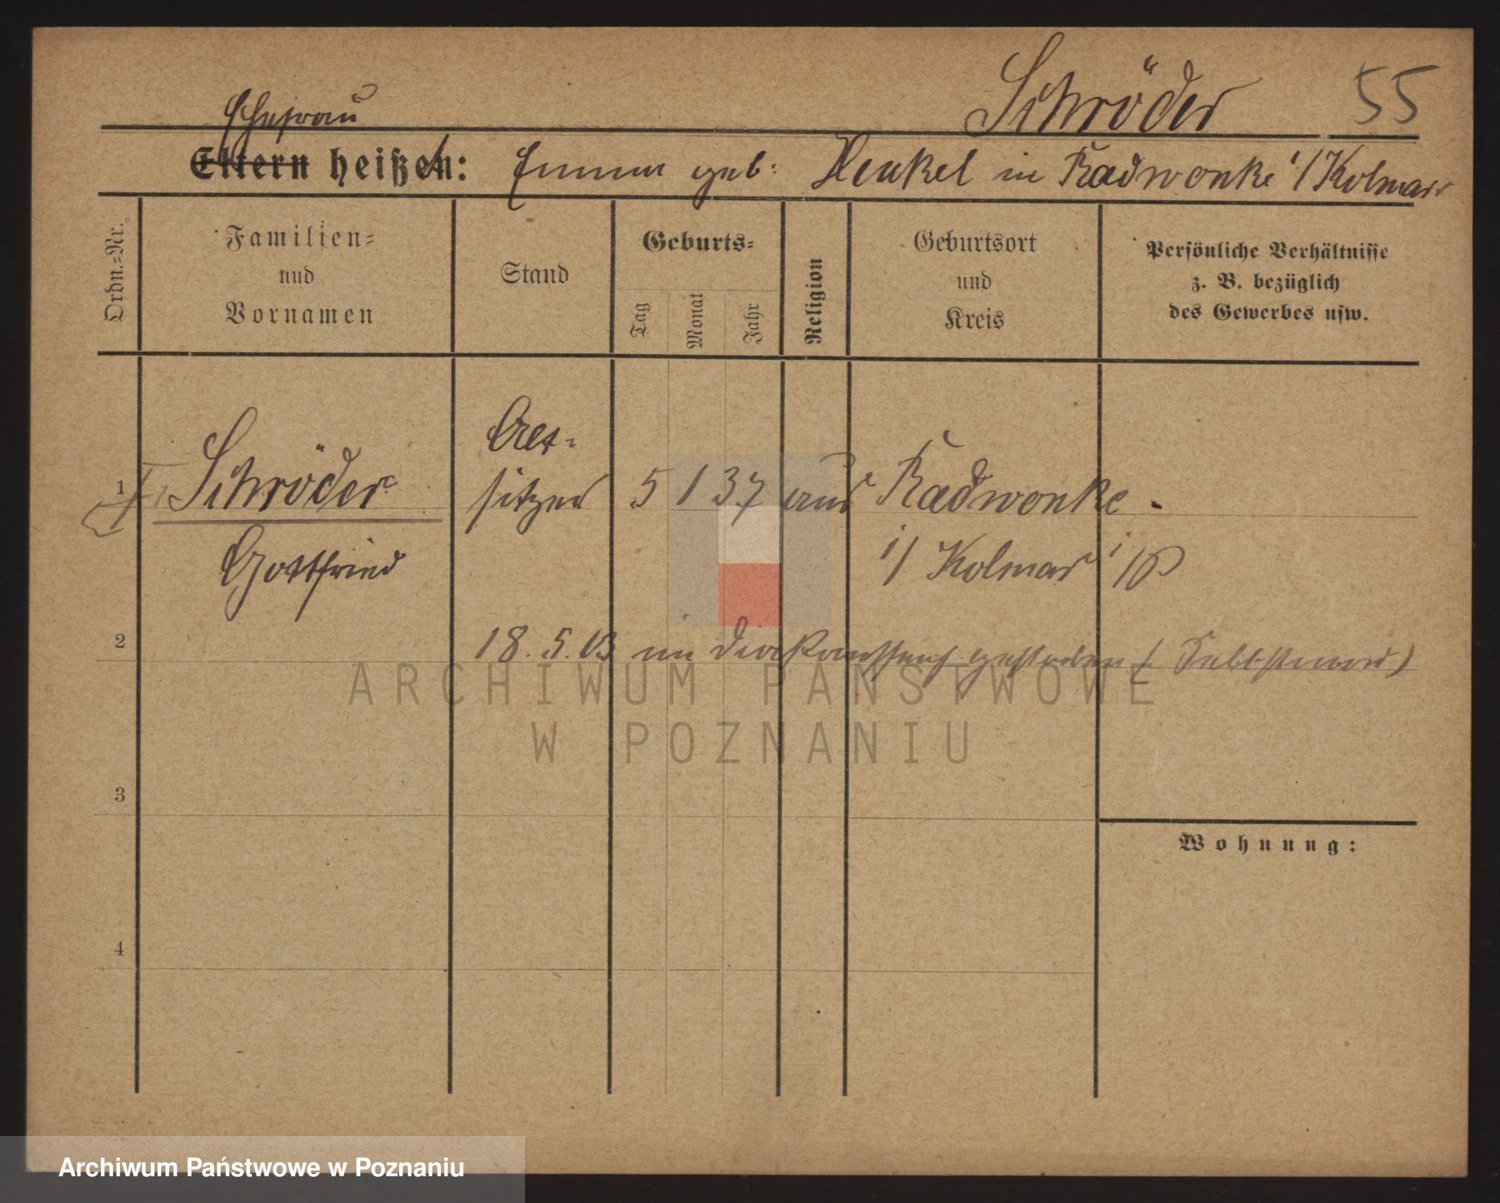 Schröder 55
Ehefrau
Eltern heißen: Emma geb: Henkel in Radwonke i/Kolmar
Ordn.-Nr.
Familien-
und
Vornamen
Stand
Geburts-
Tag
Monat
Jahr
Religion
Geburtsort
und
Kreis
Persönliche Verhältnisse
z. B. bezüglich
des Gewerbes usw.
1 Schröder
Gottfried
Alt-
sitzer
5 1 37 aus Radwonke
i/ Kolmar i/P
2
18. 5. 03 im gestorben (Selbstmord)
ARCHIWUM PAŃSTWOWE
W POZNANIU
3
Wohnung:
4
Archiwum Państwowe w Poznaniu